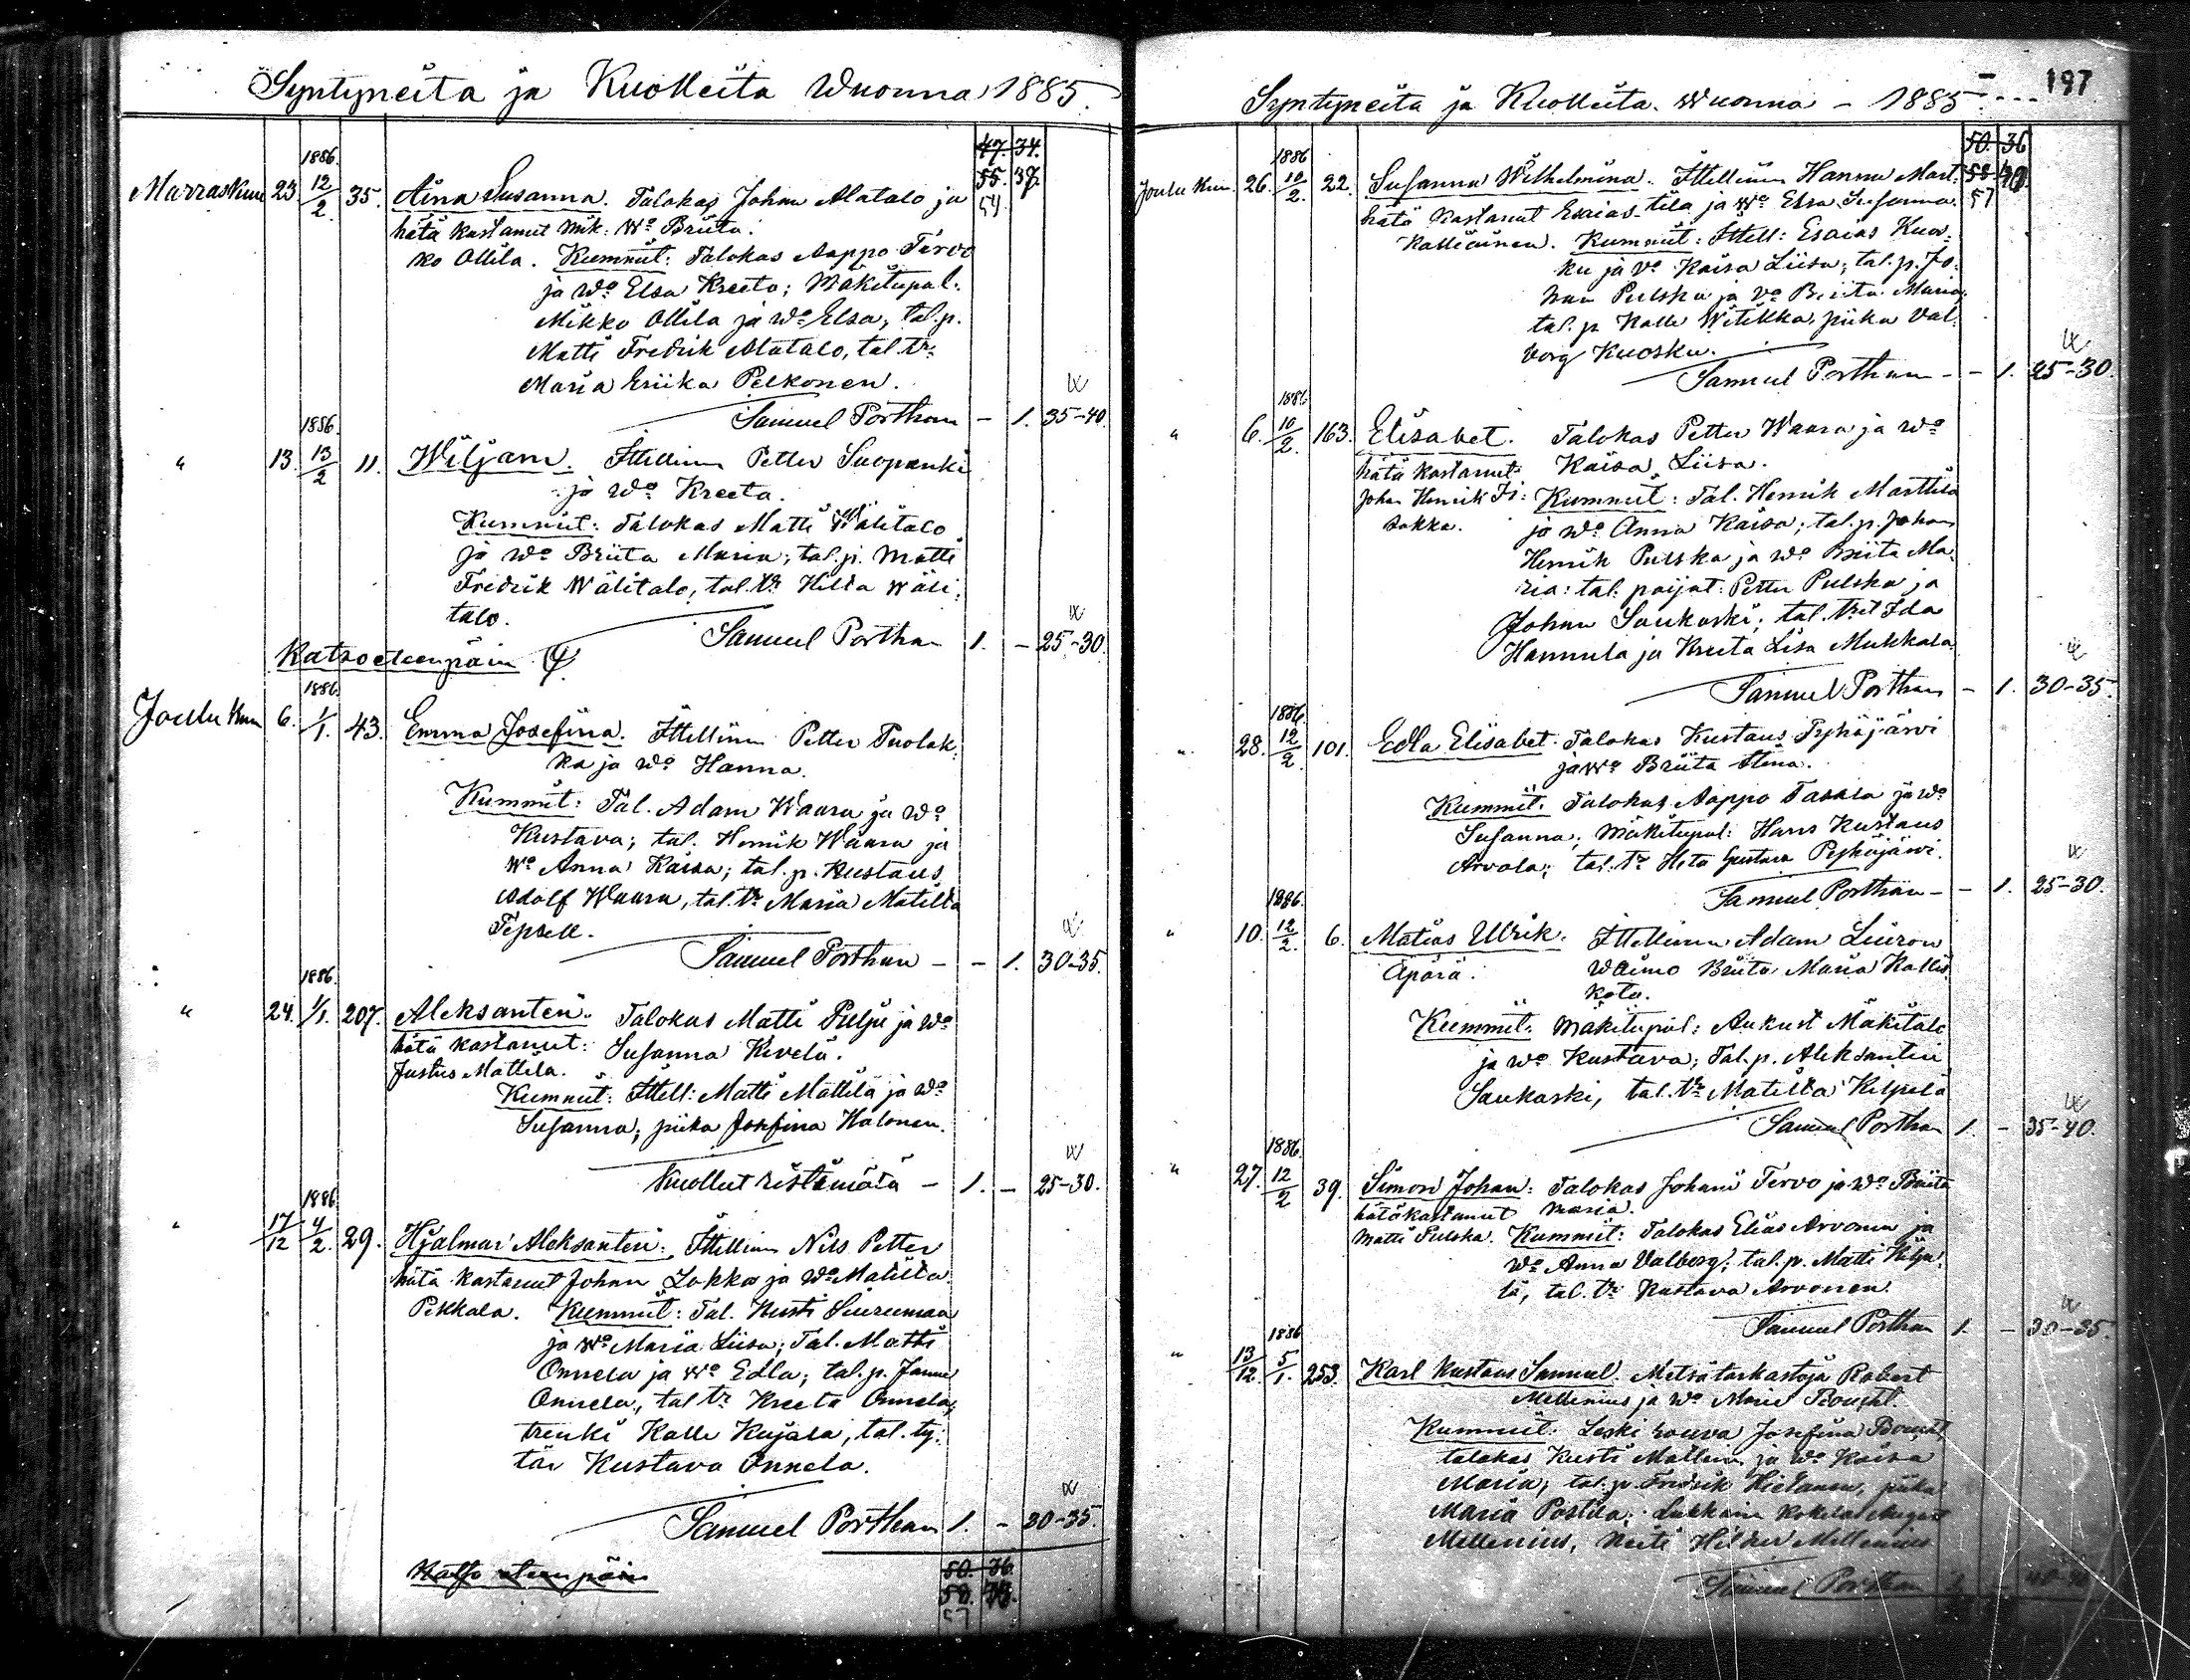 Syntyneitä ja Kuolleita Wuonna 1885.
47. 34.
1886.
55. 37.
54.
Marraskuu 23. 12/2 35. Aina Susanna. Talokas Johan Alatalo ja
hätä kastanut Mik: Wo Briita.
ko Ollila. Kummit: Talokas Aappo Tervo
ja Wo Elsa Kreeta; Mäkitupal:
Mikko Ollila ja Wo Elsa, tal. p.
Matti Fredrik Alatalo, tal. tr:
Maria Eriika Pelkonen.
Samuel Porthan - 1. 35-40
1886.
" 13. 13/2 11. Wiljam. Ittellinen Petter Suopanki
ja Wo Kreeta.
Kummit: Talokas Matti Wälitalo
ja Wo Briita Maria; tal. p. Matti
Fredrik Wälitalo, tal. tr Hilda Wäli:
talo.
Samuel Porthan 1. - 25-30.
Katso eteenpäin
1886.
Joulu kuu 6. 1/1. 43. Emma Josefina. Ittellinen Petter Puolak:
ka ja Wo Hanna.
Kummit: Tal. Adam Waara ja Wo
Kustava; tal. Henrik Waara ja
Wo Anna Kaisa; tal. p. Kustaus
Adolf Waara, tal. tr Maria Matilda
Tepsell.
Samuel Porthan - - 1. 30-35.
1886.
" 24. 1/1. 207. Aleksanteri. Talokas Matti Pulju ja Wo
hätä kastanut: Susanna Kivelä.
Justus Mattila.
Kummit: Ittell: Matti Mattila ja Wo
Susanna; piika Josefina Halonen.
Kuollut ristimätä - 1. - 25-30.
1886
" 17/12 4/2. 29. Hjalmar Aleksanteri. Ittellinen Nils Petter
hätä kastanut Johan Lokka ja Wo Matilda
Pekkala. Kummit: Tal. Kusti Siurumaa
ja Wo Maria Liisa; Tal. Matti
Onnela ja Wo Edla; tal. p. Janne
Onnela, tal tr Kreeta Onnela,
trenki Kalle Kujala, tal. ty:
tär Kustava Onnela.
Samuel Porthan 1. - 30-35.
Katso eteenpäin
50. 36.
58.
57
197
Syntyneitä ja Kuolleita. Wuonna - 1885.
50. 36
1886
Joulu kuu. 26. 10/2. 22. Susanna Wilhelmina. Ittellinen Hannu Mart:
57
hätä kastanut Esaias tila ja Wo Elsa Susanna.
Kalliainen. Kummit: Ittell: Esaias Kuos:
ku ja Vo Kaisa Liisa; tal. p. Jo:
han Pulska ja Vo Briita Maria,
tal. p Kalle Witikka, piika Val:
borg Kuosku.
Samuel Porthan - - 1. 25-30.
1886
" 6. 10/2. 163. Elisabet. Talokas Petter Waara ja Wo
hätä kastanut Kaisa Liisa.
Johan Henrik
sakka. Kummit: Tal. Henrik Marttila
ja Wo Anna Kaisa; tal. p. Johan
Henrik Pulska ja Wo Briita Ma:
ria: tal. poijat: Petter Pulska ja
Johan Saukoski; tal. tret Ida
Hannula ja Kreeta Liisa Mukkala
Samuel Porthan - 1. 30-35.
1886.
" 28. 12/2. 101. Edla Elisabet. Talokas Kustaus Pyhäjärvi
ja Wo Briita Stina.
Kummit: Talokas Aappo Tasala ja Wo
Susanna; Mäkitupal: Hans Kustaus
Arvola; tal. tr Heta Gustava Pyhäjärvi.
Samuel Porthan - - 1. 25-30.
1886.
" 10. 12/2. 6. Matias Ulrik. Ittellinen Adam Liuron
Äpärä. Waimo Briita Maria Kallis
kota.
Kummit: Mäkitupal: Aukust Mäkitalo
ja Wo Kustava; Tal. p. Aleksanteri
Saukoski, tal. tr Matilda Kilpelä
Samuel Porthan 1. - 35-40.
1886.
" 27. 12/2 39. Simon Johan: Talokas Johani Tervo ja Wo Briita
hätäkastanut Maria.
Matti Pulska. Kummit: Talokas Elias Arvonen ja
Wo Anna Valborg: tal. p. Matti Kilpe:
lä, tal. tr Kustava Arvonen.
Samuel Porthan 1. - 30-35.
1886
" 13/12. 5/1. 253. Karl Kustaus Samuel. Metsätarkastaja Robert
Mellenius ja Wo Maria Boucht.
Kummit: Leski rouva Josefina Boucht
talokas Kusti Mattein ja Wo Kaisa
Maria; tal. p. Fredrik Hietanen, piika
Maria Postila; Lukkarin kokelas August
Mellenius, Neiti Hilda Mellenius
Samuel Porthan